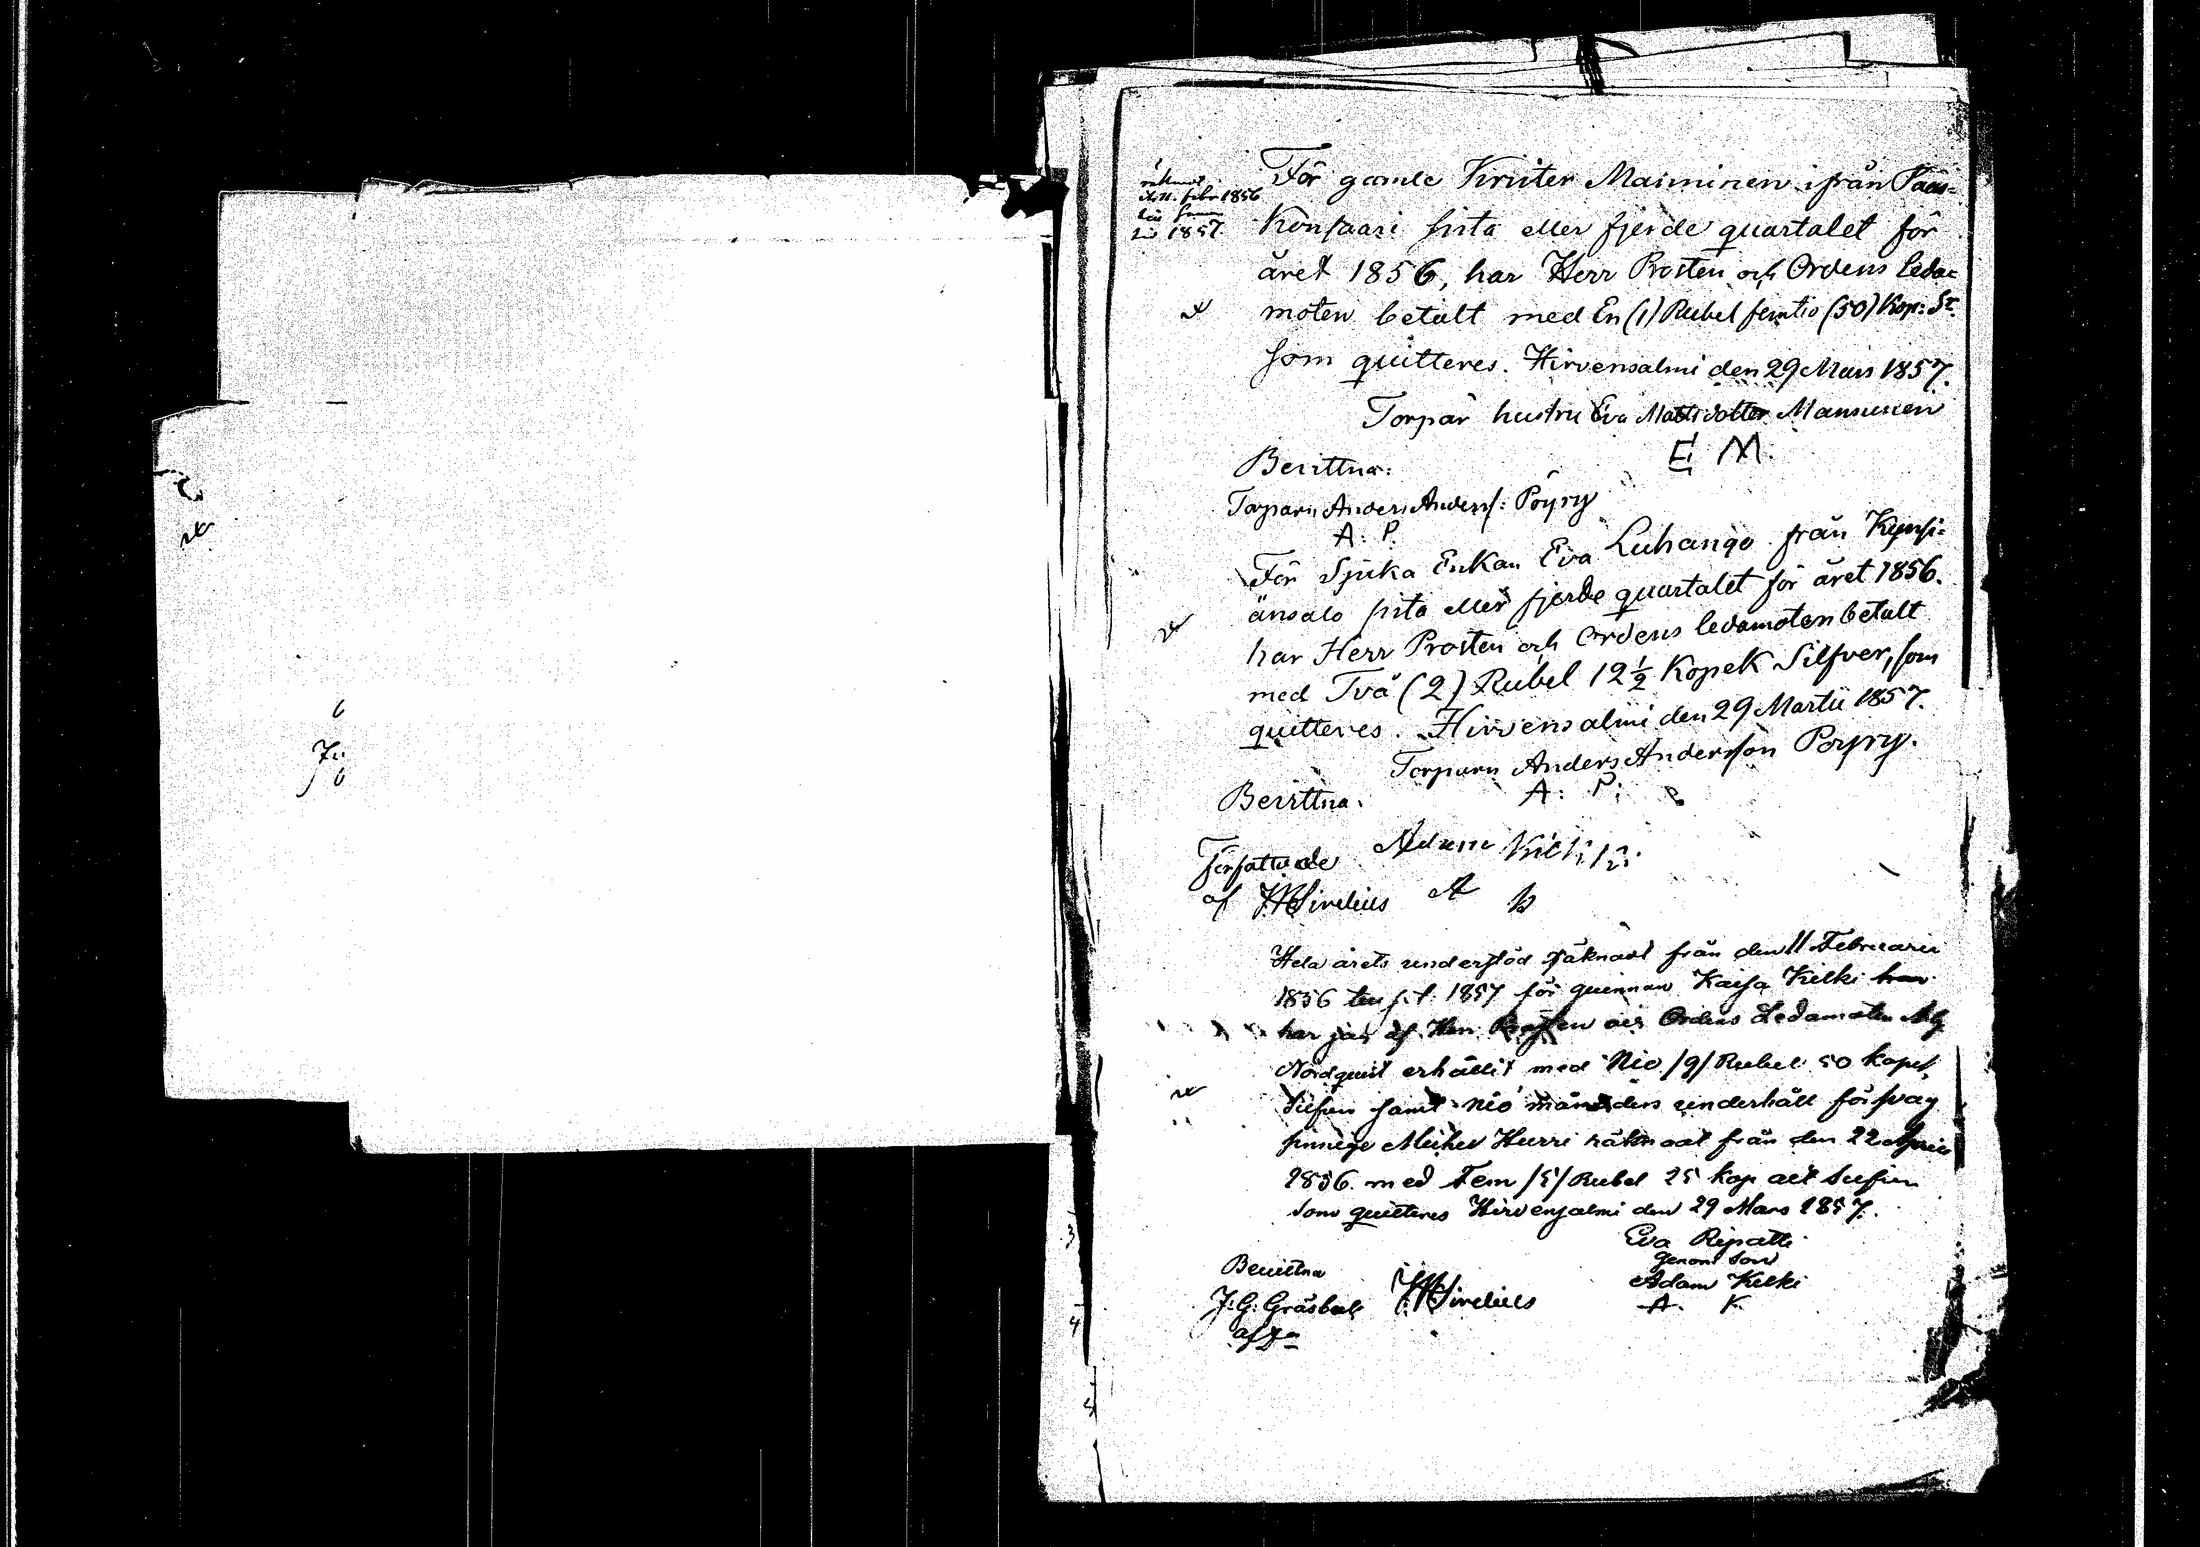 räknad
d. 11. febr 1856
till samma
tid 1857.
För gamle Krister Maininen ifrån Pääs-
könsaari sista eller fjerde quartalet för
året 1856, har Herr Prosten och Ordens leda-
moten betalt med En (1) Rubel femtio (50) Kop: Sr.
som quitteres. Hirvensalmi den 29 Mars 1857.
Torpar hustru Eva Mattsdotter Mansinen
E. M.
Bevittna:
Torparn Anders Anderss: Pöyry
A: P.
För Sjuka Enkan Eva Luhango från Kynsi-
änsalo sista eller fjerde quartalet för året 1856.
har Herr Prosten och Ordens ledamoten betalt
med Två (2) Rubel 12 ½ Kopek Silfver, som
quitteres. Hirvensalmi den 29 Martii 1857.
Torparn Anders Andersson Pöyry.
A: P:
Bevittna:
Författade
af Sirelius
Adam Kilkki
A K
Hela årets understöd räknadt från den 11 Februarii
1856 till s. t. 1857 för quinnan Kaisa Kilki har
har jag af Herr Prosten och Ordens Ledamoten
Nordquist erhållit med Nio /9/ Rubel 50 kopek
Silfver samt nio månaders underhåll för svag
sinnige Michel Hurri räknadt från den 22 Aprill
1856. med Fem /5/ Rubel 25 kop allt Silfver
som quitteres Hirvensalmi den 29 Mars 1857.
Eva Ripatti
genom son
Adam Kilki
A. K.
Bevittna
J. G. Gräsbeck Sirelius
3
4
5